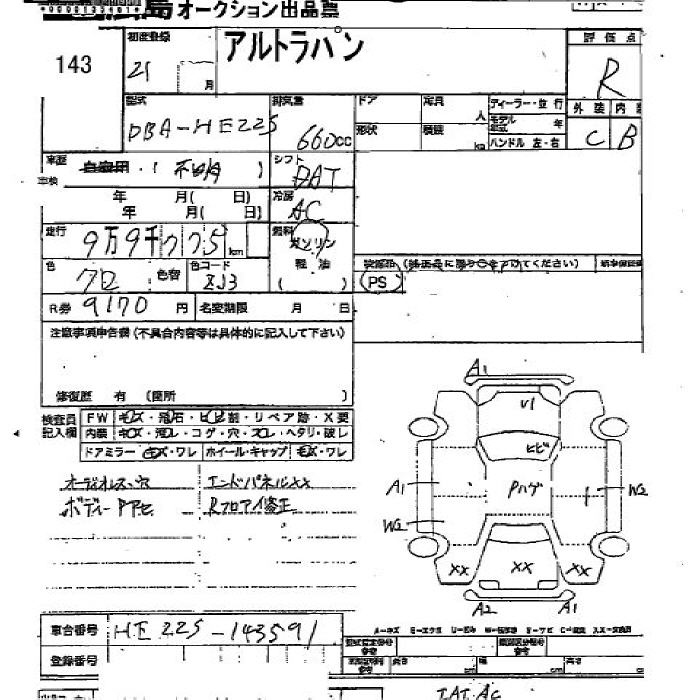 オークション出品票
143
初度登録
21
月
アルトラパン
評価点
R
型式
DBA-HE22S
排気量
660cc
ドア
定員
人
形状
積載
kg
ディーラー・並行
モデル年式
年
ハンドル 左・右
外装
内装
C
B
車歴
自家用・(不明)
シフト
DAT
車検
年 月( 日)
年 月( 日)
冷房
AC
走行
9万9千775km
燃料
ガソリン
軽油
( )
色
クロ
色替
色コード
ZJ3
(PS)
R券
9170円
名変期限
月 日
注意事項申告欄(不具合内容等は具体的に記入して下さい)
修復歴 有 (箇所 )
検査員記入欄
FW
キズ・飛石・ヒビ割・リペア跡・X要
内装
キズ・汚レ・コゲ・穴・スレ・ヘタリ・破レ
ドアミラー
キズ・ワレ
ホイール・キャップ
キズ・ワレ
オーディオレス・穴
エンドパネルXX
ボディーPPヒ
Rフロアイ修正
A1
U1
ヒビ
A1
Pハゲ
W2
W2
XX
XX
XX
A2
A1
車台番号
HE22S-143591
登録番号
型式指定番号
類別区分番号
長さ
cm
幅
cm
高さ
cm